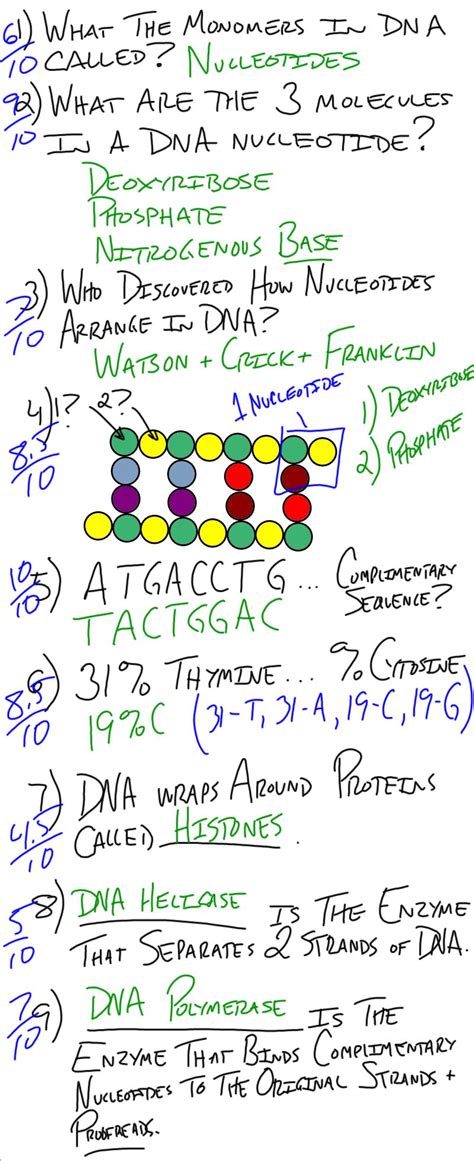 6/10 1) WHAT THE MONOMERS IN DNA
CALLED? NUCLEOTIDES
9/10 2) WHAT ARE THE 3 MOLECULES
IN A DNA NUCLEOTIDE?
DEOXYRIBOSE
PHOSPHATE
NITROGENOUS BASE
7/10 3) WHO DISCOVERED HOW NUCLEOTIDES
ARRANGE IN DNA?
WATSON + CRICK + FRANKLIN
8.5/10 4) 1? 2?
1 NUCLEOTIDE
1) DEOXYRIBOSE
2) PHOSPHATE
10/10 5) ATGACCTG ... COMPLIMENTARY
SEQUENCE?
TACTGGAC
8.5/10 6) 31% THYMINE... % CYTOSINE
19% C (31-T, 31-A, 19-C, 19-G)
4.5/10 7) DNA WRAPS AROUND PROTEINS
CALLED HISTONES.
5/10 8) DNA HELICASE IS THE ENZYME
THAT SEPARATES 2 STRANDS OF DNA.
7/10 9) DNA POLYMERASE IS THE
ENZYME THAT BINDS COMPLIMENTARY
NUCLEOTIDES TO THE ORIGINAL STRANDS +
PROOFREADS.